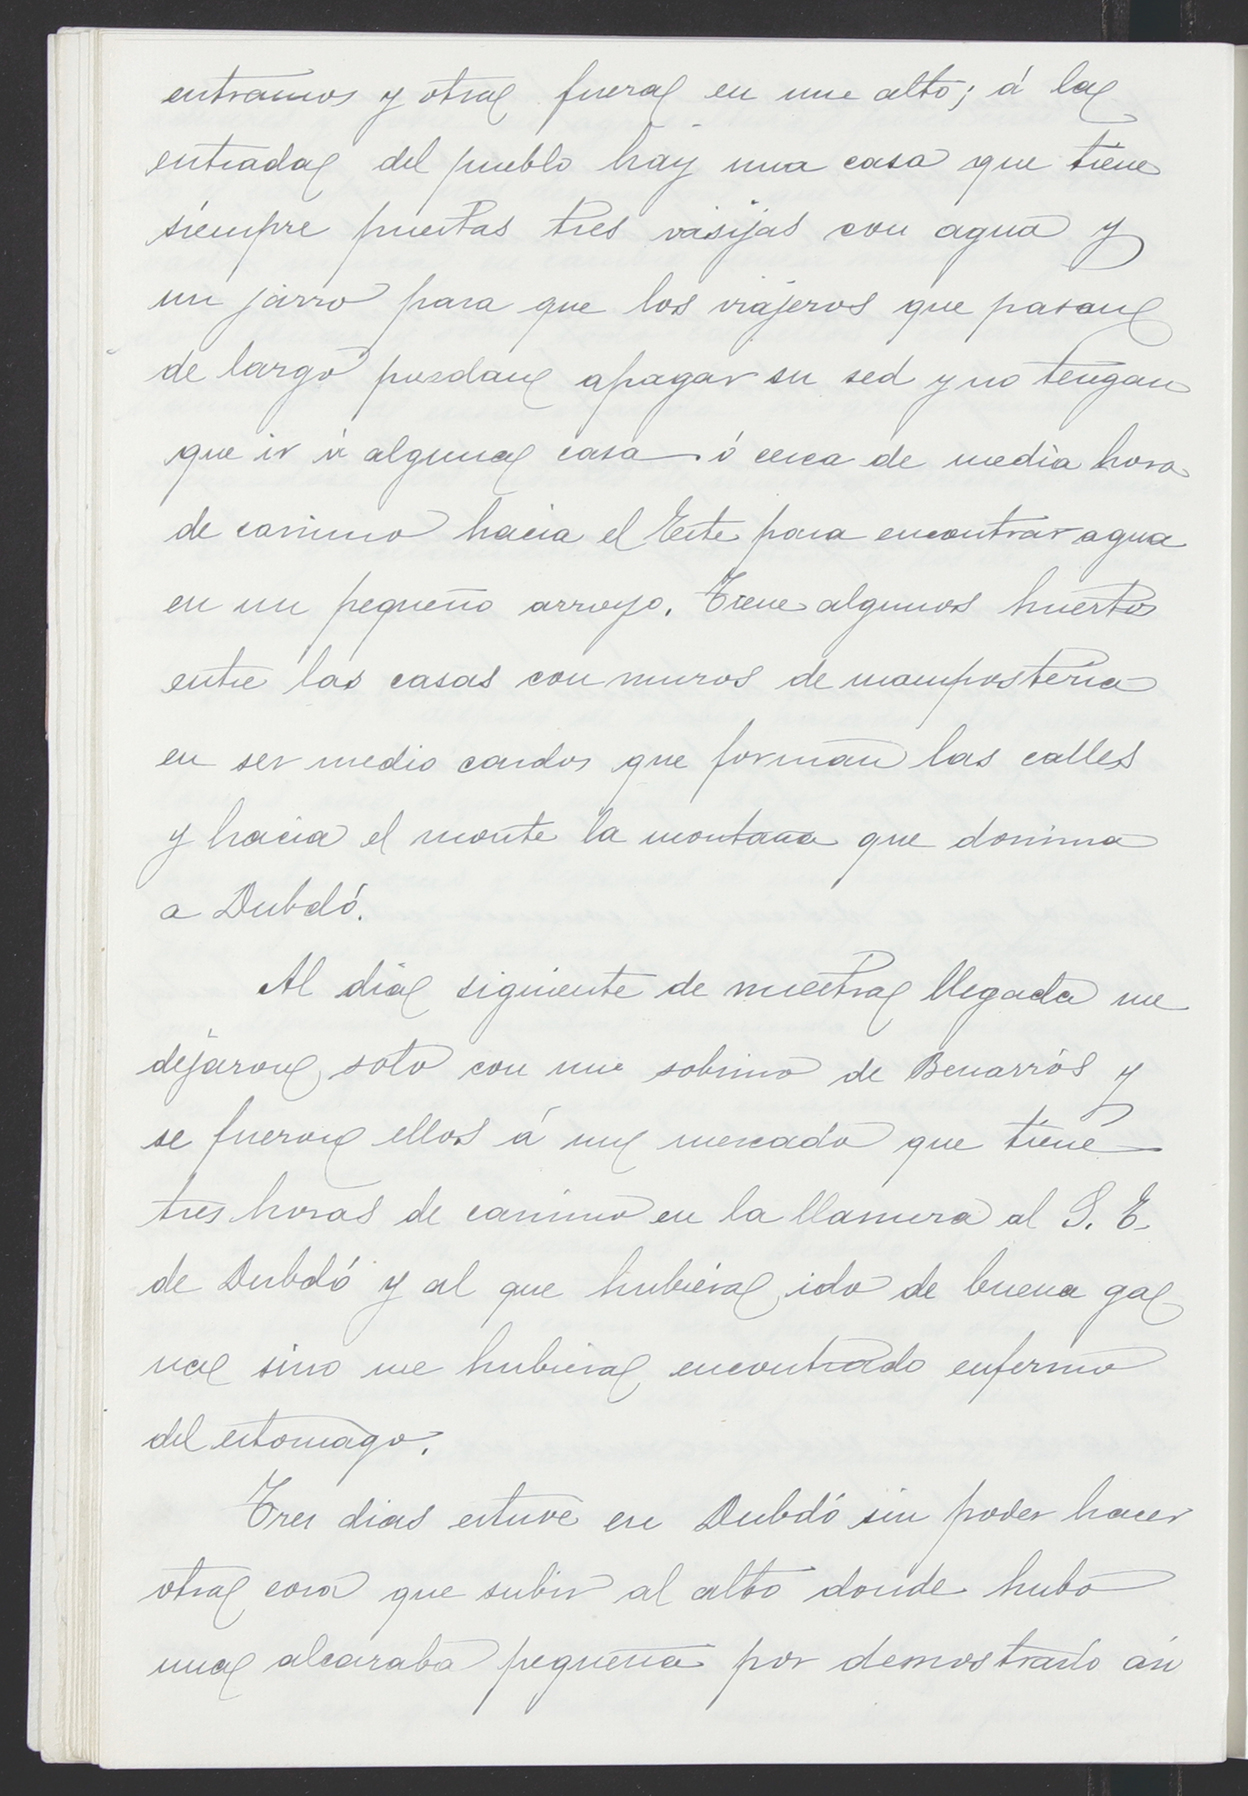 entramos y otra fuera en un alto; á la
entrada del pueblo hay una casa que tiene
siempre puertas tres vasijas con agua y
un jarro para que los viajeros que pasan
de largo puedan apagar su sed y no tengan
que ir á alguna casa ó cerca de media hora
de camino hacia el Este para encontrar agua
en un pequeño arroyo. Tiene algunos huertos
entre las casas con muros de mampostería
en ser medio caidos que forman las calles
y hacia el monte la montaña que domina
a Dubdó.
Al dia siguiente de nuestra llegada me
dejaron solo con un sobrino de Benarrós y
se fueron ellos á un mercado que tiene
tres horas de camino en la llanura al S. E.
de Dubdó y al que hubiera ido de buena ga
na sino me hubiera encontrado enfermo
del estomago.
Tres dias estuve en Dubdó sin poder hacer
otra cosa que subir al alto donde hubo
una alcazaba pequeña por demostrarlo aún